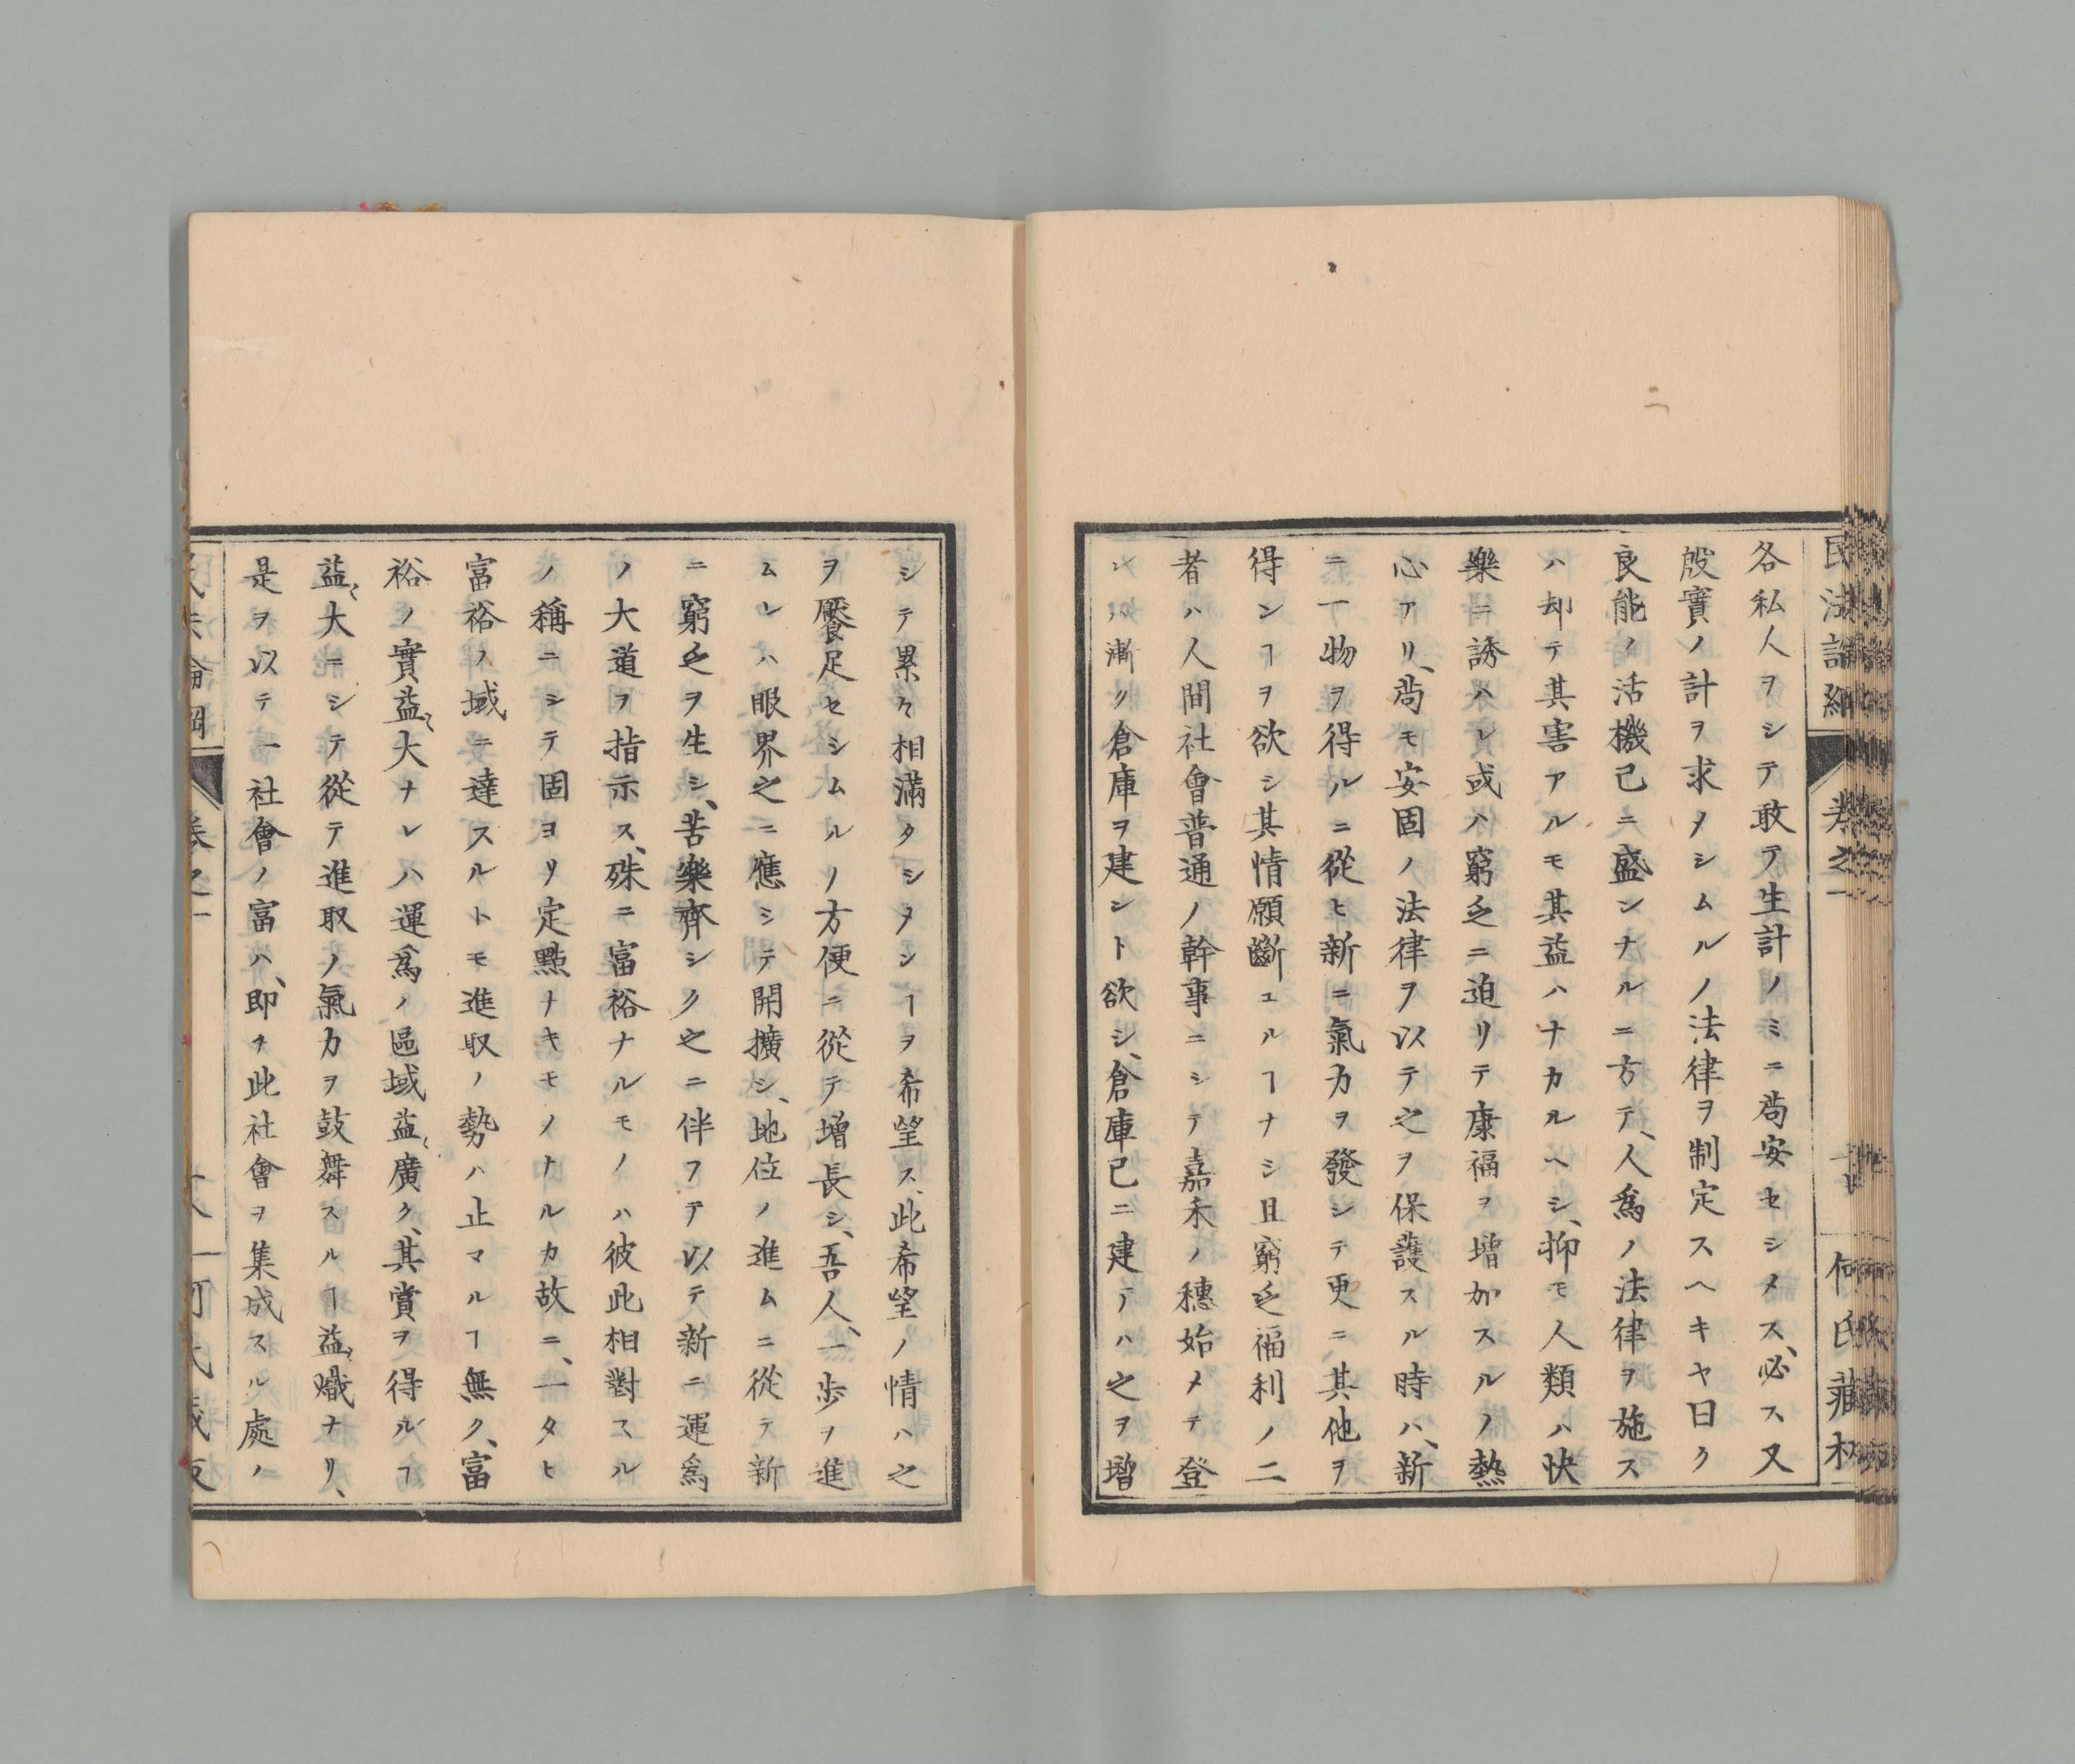 各私人ヲシテ敢テ生計ノミニ苟安セシメス、必ス又
殷實ノ計ヲ求メシムルノ法律ヲ制定スヘキヤ曰ク
良能ノ活機已ニ盛ンナルニ方テ、人爲ノ法律ヲ施ス
ハ却テ其害アルモ其益ハナカルヘシ、抑モ人類ハ快
樂ニ誘ハレ或ハ窮乏ニ迫リテ康福ヲ増加スルノ熱
心アリ、苟モ安固ノ法律ヲ以テ之ヲ保護スル時ハ、新
ニ一物ヲ得ルニ從ヒ新ニ氣力ヲ發シテ更ニ其他ヲ
得ンヿヲ欲シ其情願斷ユルヿナシ且窮乏福利ノ二
者ハ人間社會普通ノ幹事ニシテ嘉禾ノ穗始メテ登
レハ漸ク倉庫ヲ建ント欲シ、倉庫已ニ建テハ之ヲ增
シテ累々相滿タシメンヿヲ希望ス、此希望ノ情ハ之
ヲ饜足セシムルノ方便ニ從テ增長シ、吾人、一歩ヲ進
ムレハ眼界之ニ應シテ開擴シ、地位ノ進ムニ從テ新
ニ窮乏ヲ生シ、苦樂齊シク之ニ伴フテ以テ新ニ運爲
ノ大道ヲ指示ス、殊ニ富裕ナルモノハ彼此相對スル
ノ稱ニシテ固ヨリ定點ナキモノナルカ故ニ、一タヒ
富裕ノ域ニ達スルトモ進取ノ勢ハ止マルヿ無ク、富
裕ノ實益〻大ナレハ運爲ノ區域益〻廣ク、其賞ヲ得ルヿ
益〻大ニシテ從テ進取ノ氣力ヲ鼓舞スルヿ益〻熾ナリ、
是ヲ以テ一社會ノ富ハ、即チ此社會ヲ集成スル處ノ